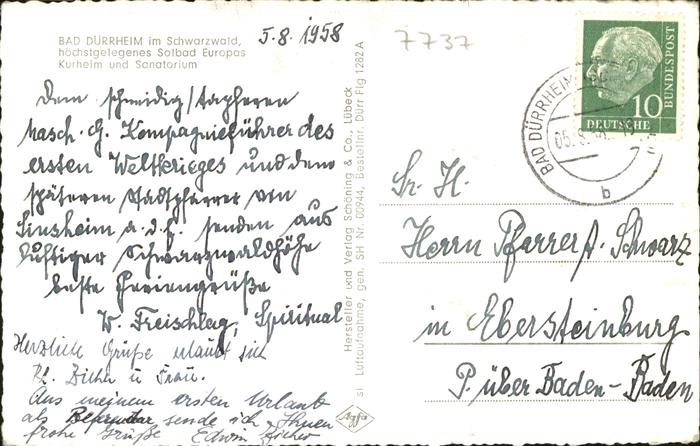 BAD DÜRRHEIM im Schwarzwald,
höchstgelegenes Solbad Europas
Kurheim und Sanatorium
5.8.1958
7737
Dem schneidig/tapferen
Masch. G. Kompagnieführer des
ersten Weltkrieges und dem
späteren Stadtpfarrer von
Sinsheim a.d.E. senden aus
luftiger Schwarzwaldhöhe
beste Feriengrüße
W. Freischlag, Spiritual
Herzliche Grüße erlaubt sich
u. Frau.
Aus meinem ersten Urlaub
als sende ich Ihnen
frohe Grüße Edwin
Hersteller und Verlag Schöning & Co., Lübeck
sl Luftaufnahme, gen. SH Nr. 00944, Bestellnr. Dürr Flg 1282 A
Agfa
DEUTSCHE
BUNDESPOST
10
BAD DÜRRHEIM
05.8.
b
Sr. H.
Herrn Pfarrer A. Schwarz
in Ebersteinburg
P. über Baden-Baden